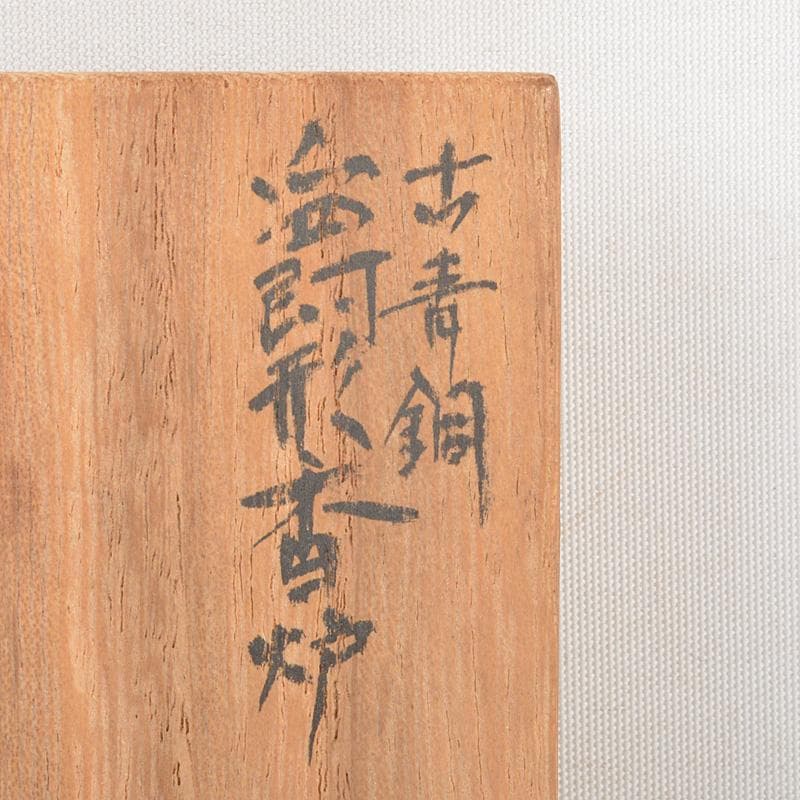 古青銅
爵形香炉